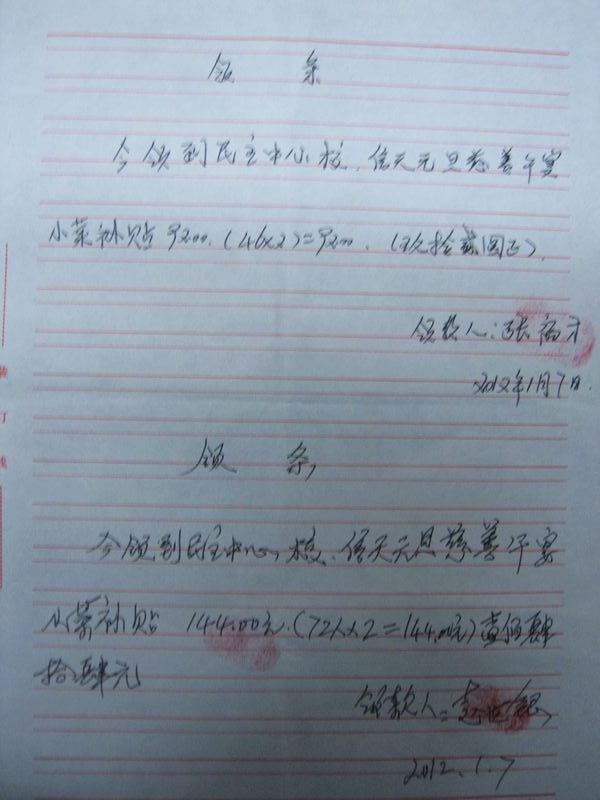 领 条
今领到民主中心校、信天元旦慈善午宴
小菜补贴 92.00. (46x2)=92.00. (玖拾贰圆正).
领款人:张
2012年1月7日.
领 条,
今领到民主中心校、信天元旦慈善午宴
小菜补贴 144.00元.(72人x2=144.00元)壹佰肆
拾肆元
领款人:
2012.1.7
装
订
线